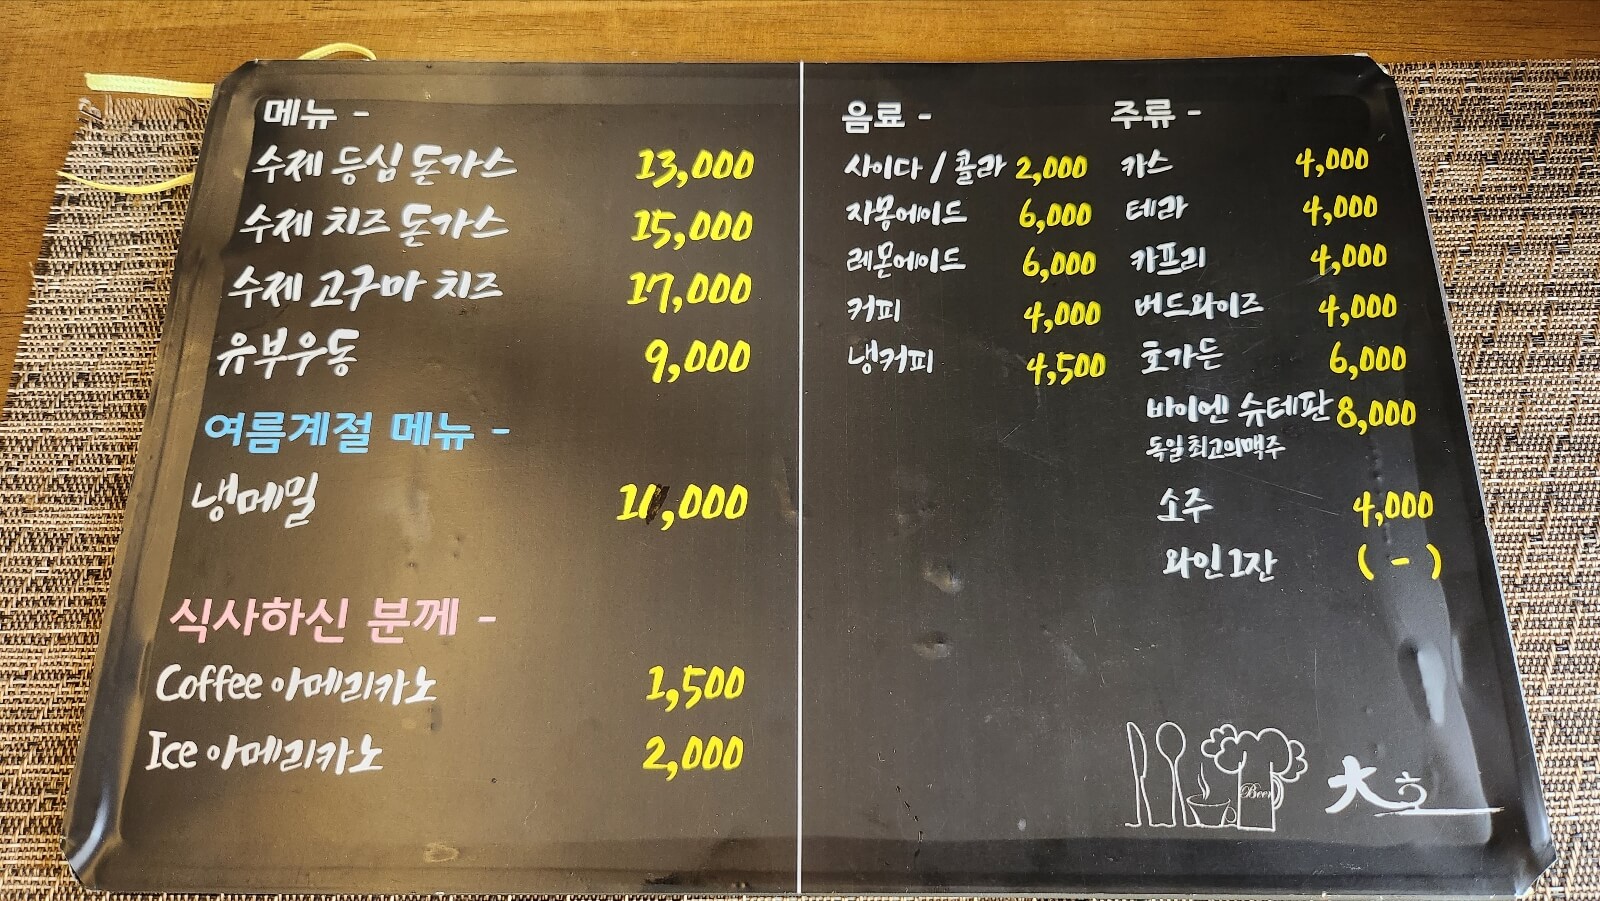 메뉴 -
수제 등심 돈가스 13,000
수제 치즈 돈가스 15,000
수제 고구마 치즈 17,000
유부우동 9,000
여름계절 메뉴 -
냉메밀 11,000
식사하신 분께 -
Coffee 아메리카노 1,500
Ice 아메리카노 2,000
음료 -
사이다 / 콜라 2,000
자몽에이드 6,000
레몬에이드 6,000
커피 4,000
냉커피 4,500
주류 -
카스 4,000
테라 4,000
카프리 4,000
버드와이즈 4,000
호가든 6,000
바이엔 슈테판 8,000
독일 최고의맥주
소주 4,000
와인 1잔 ( - )
Beer
大